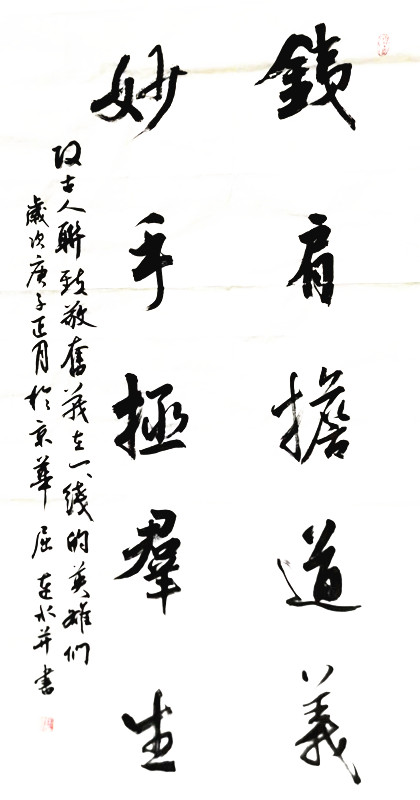 銕肩擔道義
妙手拯羣生
改古人聯致敬奮義在一線的英雄們
歲次庚子正月於京華 屈 水并書